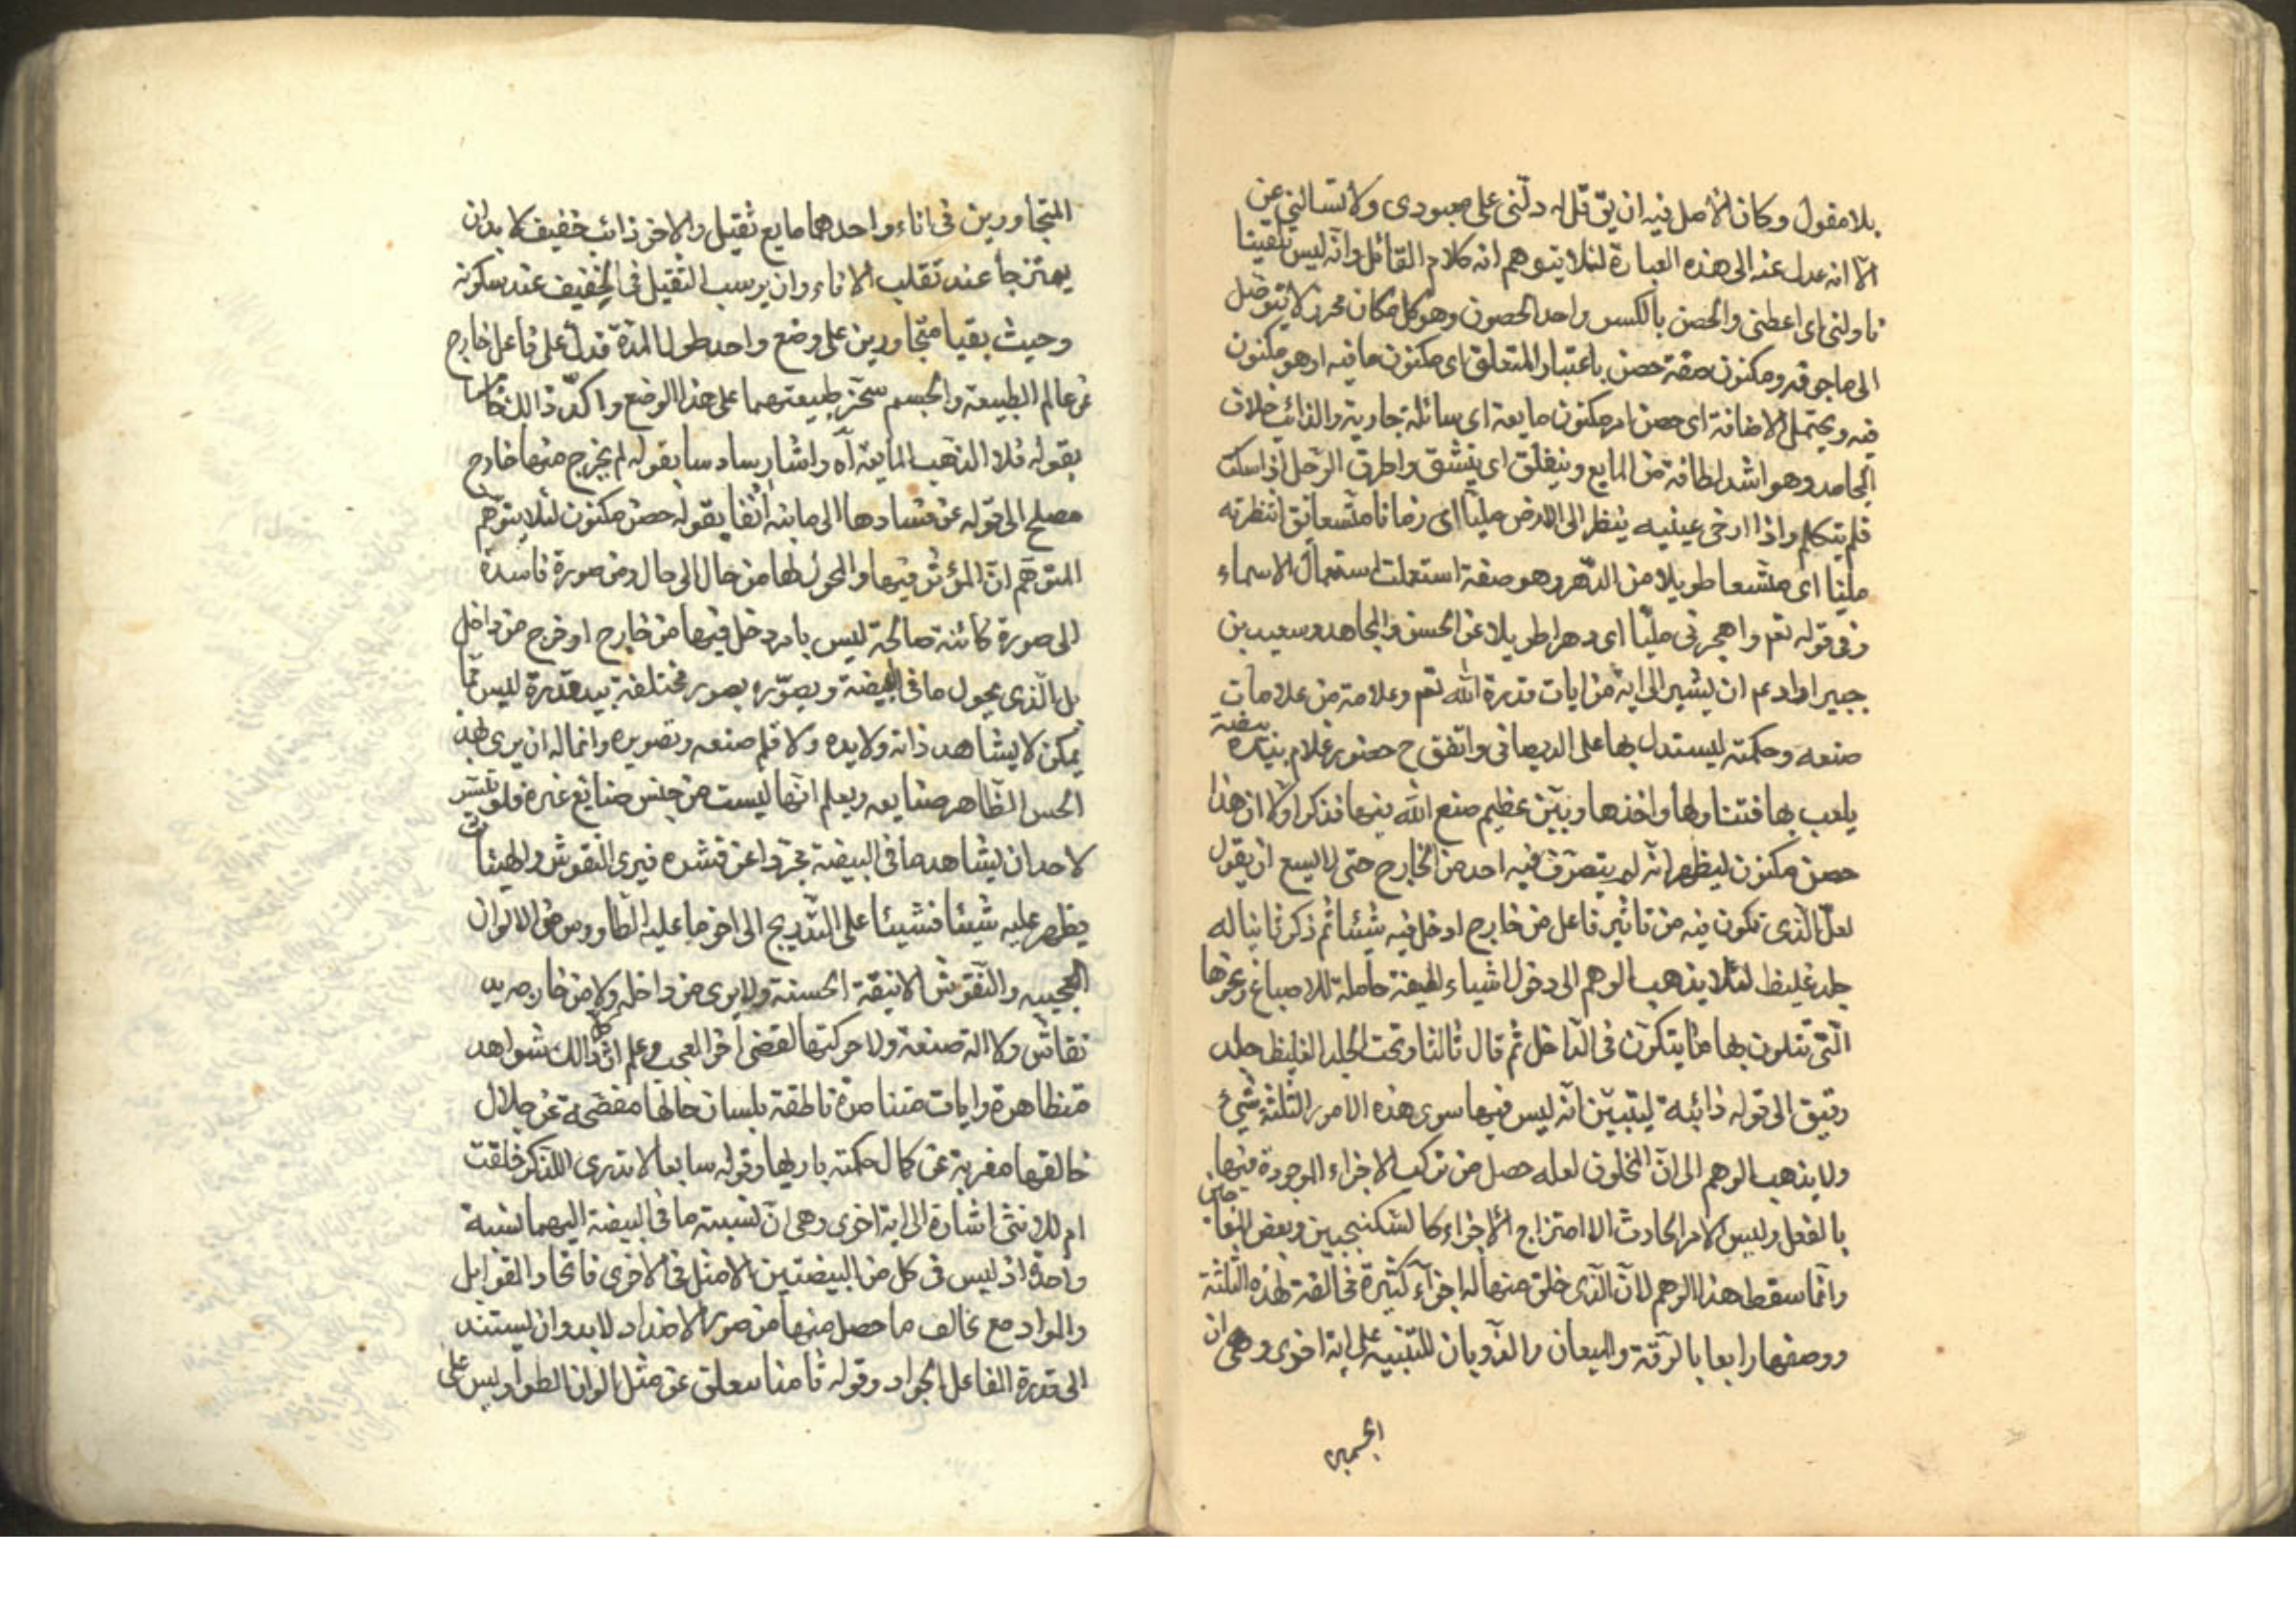 بلا مقول وكان الاصل فيه ان يق قل له دلّنى على معبودى ولا تسالنى عن
الّا انه عدل عنه الى هذه العبارة لئلا يتوهم انه كلام القائل وانّه ليس تلقينا
ناولنى اى اعطنى والحصن بالكسر واحد الحصون وهو كل مكان محرز لا يتوصّل
الى ما جوفه ومكنون صفة حصن باعتبار المتعلق اى مكنون ما فيه او هو مكنون
فيه ويحتمل الاضافة اى حصن امر مكنون مايعة اى سائلة جارية والذائب خلاف
الجامد وهو اشد لطافة من المايع وينفلق اى ينشق واطرق الرّجل اذا سكت
فلم يتكلم واذا ارخى عينيه ينظر الى الارض مليّا اى زمانا متّسعا يق انتظرته
مليّا اى متّسعا طويلا من الدّهر وهو صفة استعملت استعمال الاسماء
وفى قوله تعم واهجرنى مليّا اى دهرا طويلا عن الحسن والمجاهد وسعيد بن
جبير اراد عم ان يشير الى اية من ايات قدرة الله تعم وعلامة من علامات
صنعه وحكمته ليستدل بها على الديصانى واتفق ح حضور غلام بيده بيضة
يلعب بها فتناولها واخذها وبيّن عظيم صنع الله فيها فذكر اولا ان هذا
حصن مكنون ليظهر انّه لم يتصرّف فيه احد من الخارج حتى لا يسع ان يقول
لعلّ الّذى تكون فيه من تاثير فاعل من خارج ادخل فيه شيئا ثم ذكر ثانيا له
جلد غليظ لئلا يذهب الوهم الى دخول اشياء لطيفة حاملة للاصباغ ونحوها
الّتى تتلون بها ما يتكوّن فى الداخل ثم قال ثالثا وتحت الجلد الغليظ جلد
رقيق الى قوله ذائبة ليتبيّن انّه ليس فيها سوى هذه الامور الثّلثة شىء
ولا يذهب الوهم الى انّ المخلوق لعله حصل من تركب الاجزاء الموجودة فيها
بالفعل وليس الامر الحادث الا امتزاج الاجزاء كالسّكنجبين وبعض المعاجين
وانّما سقط هذا الوهم لانّ الّذى خلق منها له اجزآء كثيرة مخالفة لهذه الثلثة
ووصفها رابعا بالرّقة والميعان والذّوبان للتّنبيه على اية اخرى وهى ان
المتجاورين فى اناء واحد هما مايع ثقيل والاخر ذائب خفيف لا بد ان
يمتزجا عند تقلب الاناء وان يرسب الثقيل فى الخفيف عند سكونه
وحيث بقيا متجاورين على وضع واحد طول المدّة فدلّ على فاعل خارج
عن عالم الطبيعة والجسم سخّر طبيعتهما على هذا الوضع واكّد ذالك خامسا
بقوله فلا الذهب المايعة آه واشار سادسا بقوله لم يخرج منها خارج
مصلح الى قوله عن فسادها الى ما بيّنه آنفا بقوله حصن مكنون لئلا يتوهّم
المتوهّم انّ المؤثر فيها والمحول لها من حال الى حال ومن صورة فاسدة
الى صورة كائنة صالحة ليس بامر دخل فيها من خارج او خرج من داخل
بل الّذى يحول ما فى البيضة ويصوّره بصور مختلفة بيد قدرة ليس ممّا
يمكن لا يشاهد ذاته ولا يده ولا قلم صنعه وتصويره وانما له ان يرى بهذ
الحس الظّاهر صنايعه ويعلم انّها ليست من جنس صنايع غيره فلو تيسّر
لاحد ان يشاهد ما فى البيضة مجرّدا عن قشره فيرى النقوش والهيئات
يظهر عليه شيئا فشيئا على التّدريج الى اخر ما عليه الطّاووس من الالوان
العجيبه والنّقوش الانيقة الحسنة ولا يرى من داخله ولا من خارجه يد
نقاش ولا الة صنعة ولا حركتها لقضى اخر العجب وعلم ان كل ذالك شواهد
متظاهرة وايات متناصرة ناطقة بلسان حالها مفصّحة عن جلال
خالقها معربة عن كمال حكمة باريها وقوله سابعا لا تدرى اللذكر خلقت
ام للانثى اشارة الى اية اخرى وهى انّ نسبة ما فى البيضة اليهما نسبة
واحدة اذ ليس فى كل من البيضتين الا مثل فى الاخرى فاتحاد القوابل
والمواد مع تخالف ما حصل منها من صور الاضداد لا بد وان يستند
الى قدرة الفاعل الجواد وقوله ثامنا تنفلق عن مثل الوان الطواويس على